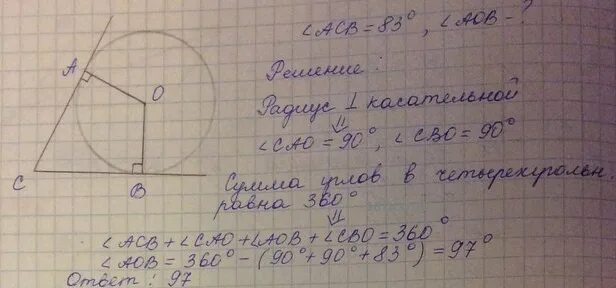 ∠ACB = 83°, ∠AOB - ?
Решение:
Радиус ⊥ касательной
⇓
∠CAO = 90°, ∠CBO = 90°
Сумма углов в четырехугольн.
равна 360°
⇓
∠ACB + ∠CAO + ∠AOB + ∠CBO = 360°
∠AOB = 360° - (90° + 90° + 83°) = 97°
Ответ: 97
A
O
C
B